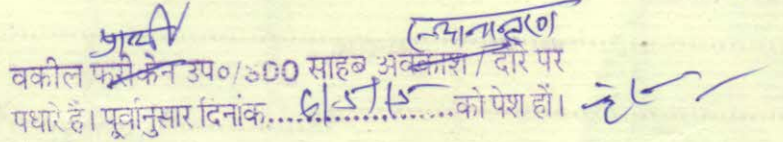 प्रार्थी स्थानान्तरण
वकील फरीकेन उप०/SDO साहब अवकाश / दौरे पर
पधारे हैं। पूर्वानुसार दिनांक....6/5/15....को पेश हों।